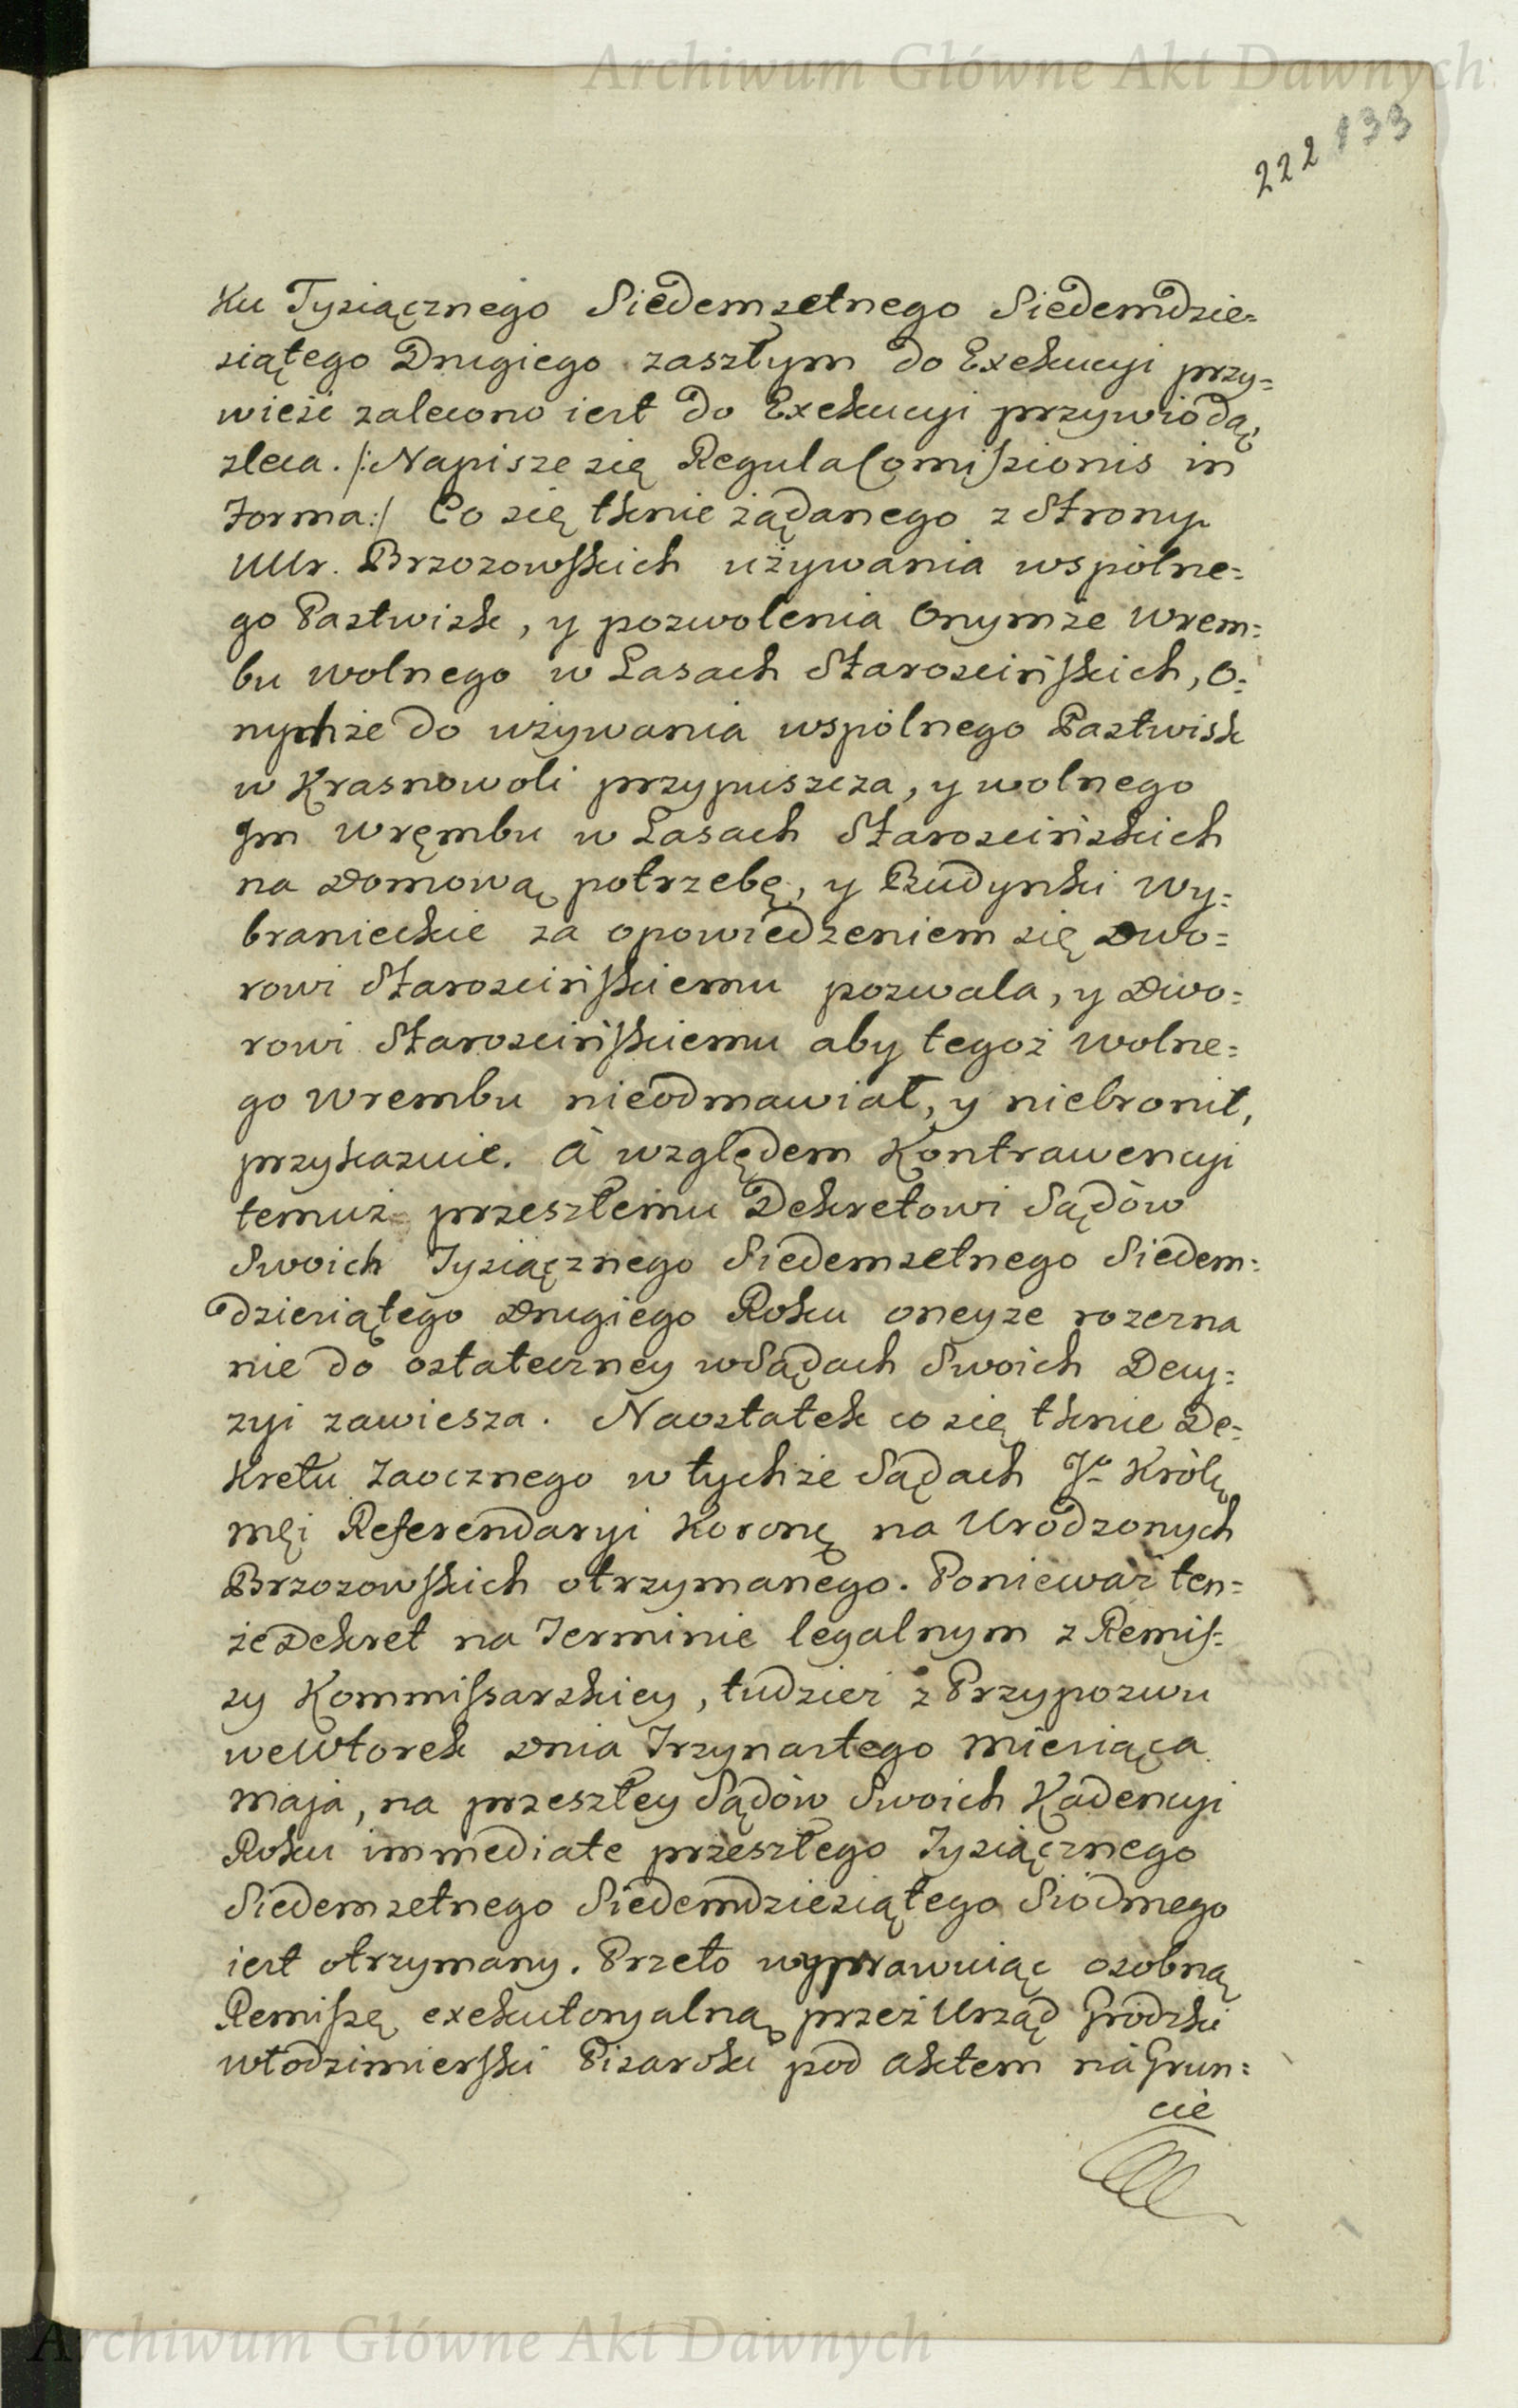 Archiwum Główne Akt Dawnych
222 133
Ku Tysiącznego Siedemsetnego Siedemdzie=
siątego Drugiego zaszłym do Exekucyi przy=
wieść zalecono iest do Exekucyi przywiodą,
zleca. /:Napisze się Regula Comissionis in
Forma:/ Co się tknie żądanego z Strony
UUr. Brzozowskich używania wspólne=
go Pastwisk, y pozwolenia Onymże Wrem=
bu wolnego w Lasach Starościńskich, O=
nychże do używania wspólnego Pastwisk
w Krasnowoli przypuszcza, y wolnego
Im Wrębmu w Lasach Starościńskich
na Domową potrzebę, y Budynki Wy=
branieckie za opowiedzeniem się Dwo=
rowi Starościńskiemu pozwala, y Dwo=
rowi Starościńskiemu aby tegoż Wolne=
go Wrembu nieodmawiał, y niebronił,
przykazuie. A względem Kontrawencyi
temuż przeszłemu Dekretowi Sądów
Swoich Tysiącznego Siedemsetnego Siedem=
dziesiątego Drugiego Roku oneyże rozezna
nie do ostateczney w Sądach Swoich Decy=
zyi zawiesza. Naostatek co się tknie De=
kretu Zaocznego w tychże Sądach Jo Królę
męi Referendaryi Koronę na Urodzonych
Brzozowskich otrzymanego. Ponieważ ten=
że Dekret na Terminie legalnym z Remis=
sy Kommissarskiey, tudzież z Przypozwu
we Wtorek Dnia Trzynastego Miesiąca
Maja, na przeszłey Sądów Swoich Kadencyi
Roku immediate przeszłego Tysiącznego
Siedemsetnego Siedemdziesiątego Siódmego
iest otrzymany. Przeto wyprawuiąc osobną
Remissę exekutoryalną przez Urząd Grodzki
Włodzimierski Pisarski pod aktem na Grun=
cie
Archiwum Główne Akt Dawnych